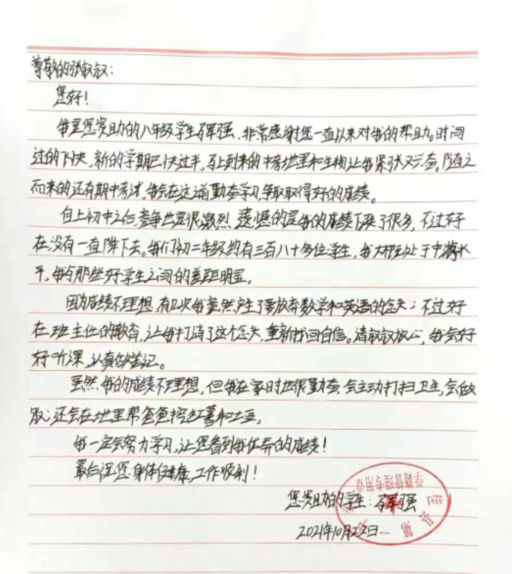 尊敬的张叔叔：
您好！
我是您资助的八年级学生 强，非常感谢您一直以来对我的帮助。时间
过的飞快，新的学期已快过半，马上到来的中考地理和生物让我紧张又不安。随之
而来的还有期中考试，我会在这之前勤奋学习，争取取得好的成绩。
自上初中之后，竞争也是很激烈，遗憾的是我的成绩下来了很多，不过好
在没有一直降下去。我们初三年级约有三百八十多位学生，我大概处于中游水
平，我与那些好学生之间的差距明显。
因为成绩不理想，有几次我竟然产生了要放弃数学和英语的念头；不过好
在班主任的教育，让我打消了这个念头，重新找回自信。请叔叔放心，我会好
好听课，认真做笔记。
虽然我的成绩不理想，但我在家时也很勤奋，会主动打扫卫生，会做
饭，还会在地里帮爸爸挖红薯和土豆。
我一定会努力学习，让您看到我优异的成绩！
最后祝您身体健康，工作顺利！
您资助的学生： 强
2021年10月22日
学籍管理专用章